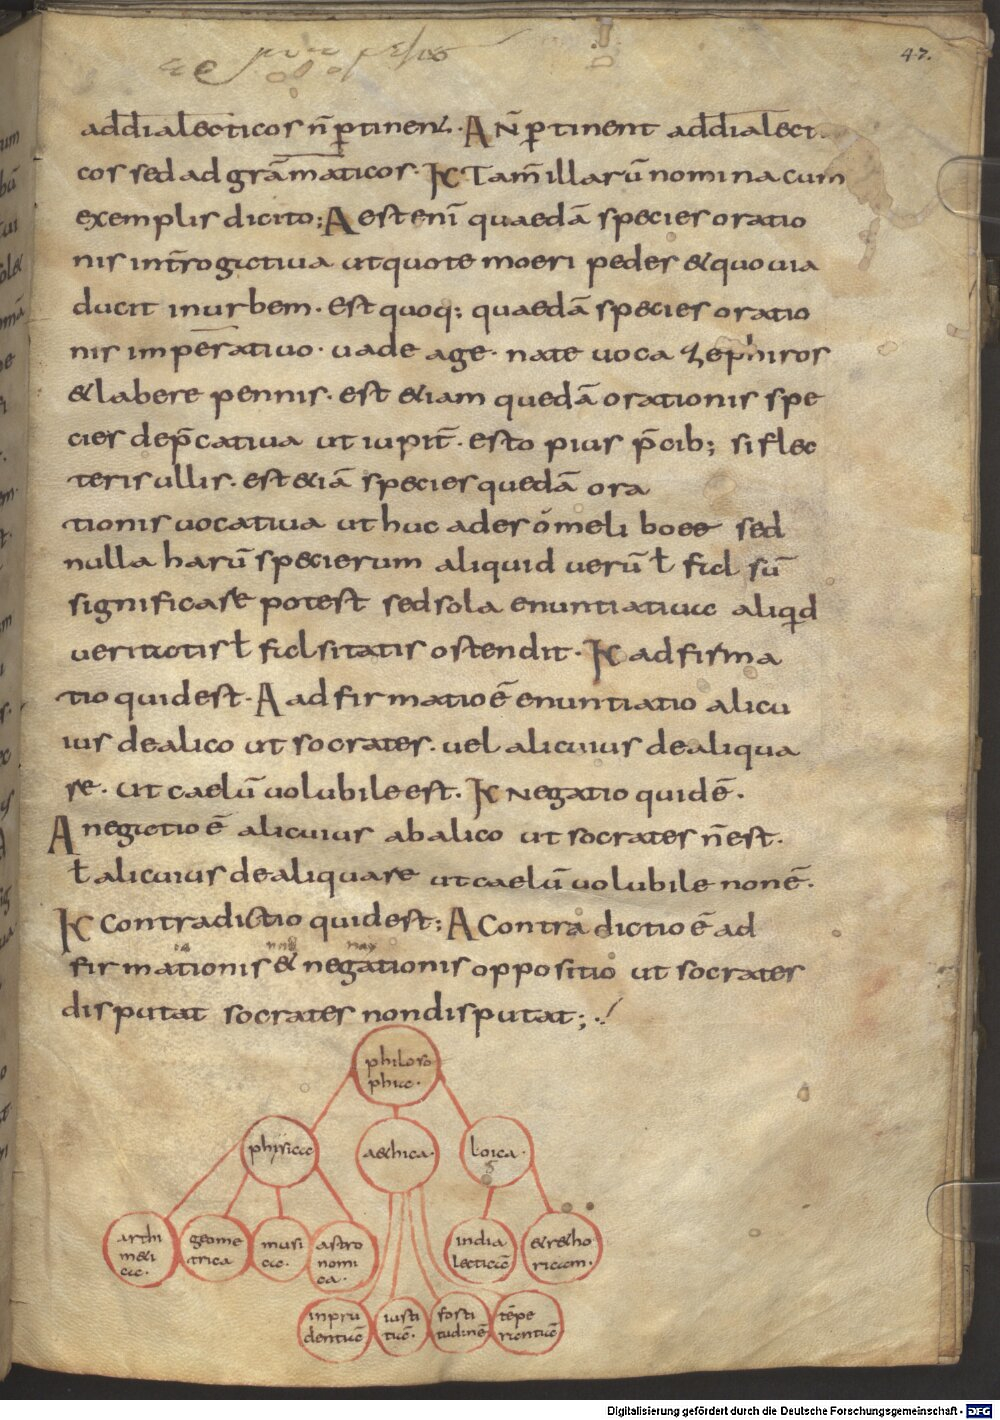 47.
addialecticos n̄ p̱tinen. A N̄ p̱tinent addialect
cos sed ad grāmaticos. K Tam̄ illarū nomina cum
exemplis dicito; A est enī quaedā species oratio
nis int̄rogativa ut quote moeri pedes & quo via
ducit in urbem. est quoq; quaedā species oratio
nis imperativo. vade age. nate voca zephiros
& labere pennis. est &iam quedā orationis spe
cies dep̄cativa ut iupit̄. esto pius p̄cib; si flec
teris ullis. est &iā species quedā ora
tionis vocativa ut huc ades o meli boee sed
nulla harū specierum aliquid verū ł fals sū
significare potest sed sola enuntiativa aliqid
veritatis ł falsitatis ostendit. K adfirma
tio quid est. A adfirmatio ē enuntiatio alicu
ius de alico ut socrates. vel alicuius de aliqua
re. ut caelū volubile est. K Negatio quid ē.
A negatio ē alicuius ab alico ut socrates n̄ est.
ł alicuius de aliqua re ut caelū volubile non ē.
K Contradictio quid est; A Contradictio ē ad
firmationis & negationis oppositio ut socrates
disputat socrates non disputat;
philoso
phia.
phisica
a&hica.
loica.
arith
m&i
ca.
geome
trica
musi
ca.
astro
nomi
ca.
india
lecticā
&r&ho
ricam.
inpru
dentiā
iusti
tiā.
forti
tudinē
tēpe
rantiā
Digitalisierung gefördert durch die Deutsche Forschungsgemeinschaft - DFG